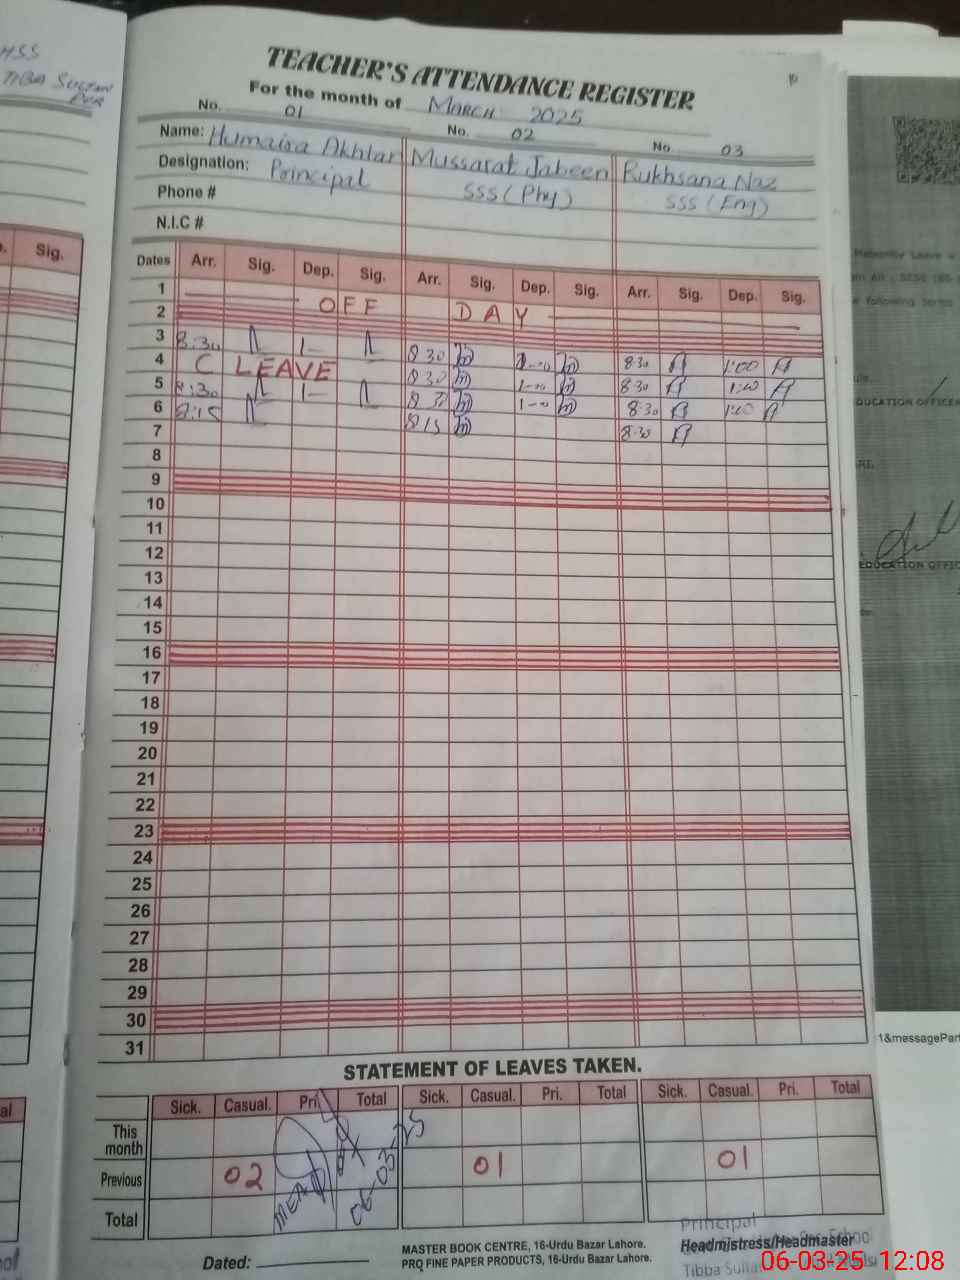 HSS
TIBA SULTAN
PUR
TEACHER'S ATTENDANCE REGISTER
For the month of MARCH 2025
No. 01 No. 02 No. 03
Name: Humaisa Akhtar Mussarat Jabeen Rukhsana Naz
Designation: Principal SSS (Phy) SSS (Eng)
Phone #
N.I.C #
Dates Arr. Sig. Dep. Sig. Arr. Sig. Dep. Sig. Arr. Sig. Dep. Sig.
1
2 OFF DAY
3 8:30 1- 8 30 1-00 8:30 1:00
4 C LEAVE 8 30 1-00 8:30 1:00
5 8:30 1- 8 30 1-00 8:30 1:00
6 8:15 8 15 8:30
7
8
9
10
11
12
13
14
15
16
17
18
19
20
21
22
23
24
25
26
27
28
29
30
31
STATEMENT OF LEAVES TAKEN.
Sick. Casual. Pri. Total Sick. Casual. Pri. Total Sick. Casual. Pri. Total
This month
Previous 02 01 01
Total
MEA 06-03-25
Dated:
MASTER BOOK CENTRE, 16-Urdu Bazar Lahore.
PRQ FINE PAPER PRODUCTS, 16-Urdu Bazar Lahore.
Principal
Headmistress/Headmaster
Tibba Sultan
06-03-25 12:08
Sig.
Maternity Leave
following terms
EDUCATION OFFICER
EDUCATION OFFIC
1&messagePar